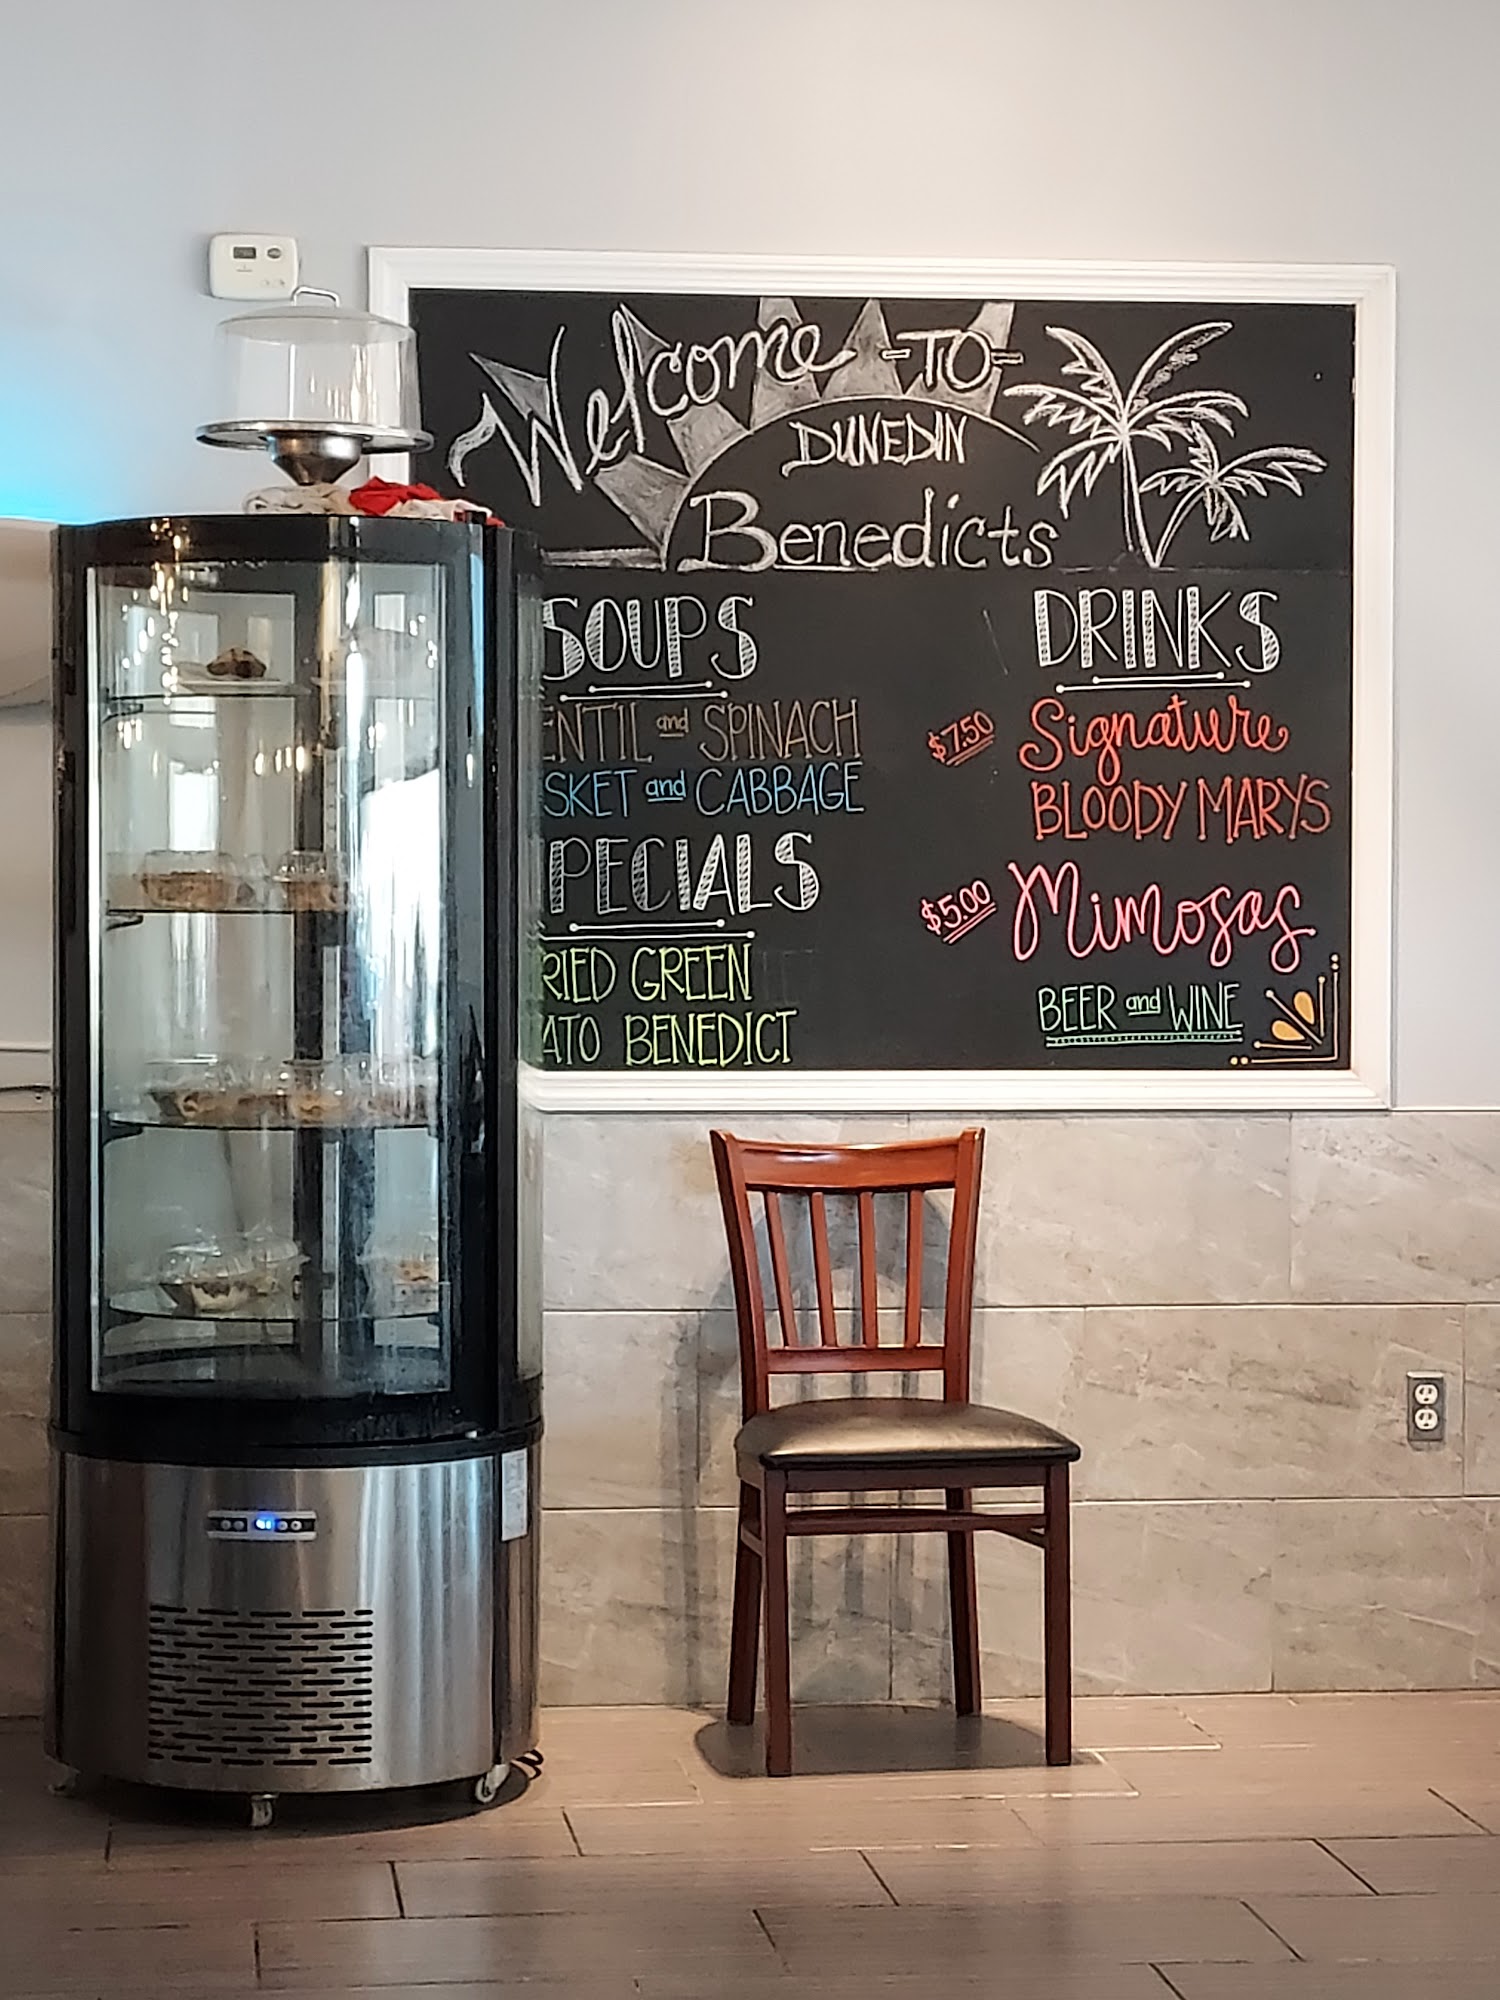 Welcome -TO-
DUNEDIN
Benedicts
SOUPS
ENTIL and SPINACH
SKET and CABBAGE
SPECIALS
RIED GREEN
ATO BENEDICT
DRINKS
$7.50 Signature
BLOODY MARYS
$5.00 Mimosas
BEER and WINE